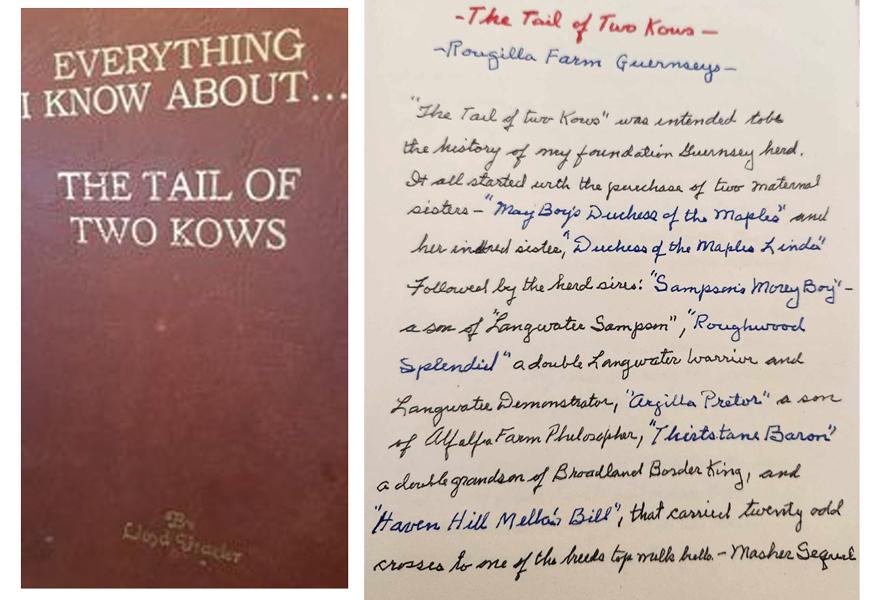 EVERYTHING
I KNOW ABOUT...
THE TAIL OF
TWO KOWS
By
Lloyd
-The Tail of Two Kows-
-Rougilla Farm Guernseys-
"The Tail of two Kows" was intended tobe
the history of my foundation Guernsey herd.
It all started with the purchase of two maternal
sisters-"May Boy's Duchess of the Maples" and
her indred sister, "Duchess of the Maples Linda"
Followed by the herd sires: "Sampson's Morey Boy"-
a son of "Langwater Sampson", "Roughwood
Splendid" a double Langwater Warrior and
Langwater Demonstrator, "Argilla Pretor" a son
of Alfalfa Farm Philosopher, "Thirstane Baron"
a double grandson of Broadland Border King, and
"Haven Hill Mella's Bill", that carried twenty odd
crosses to one of the breeds top milk bulls.-Masher Sequel